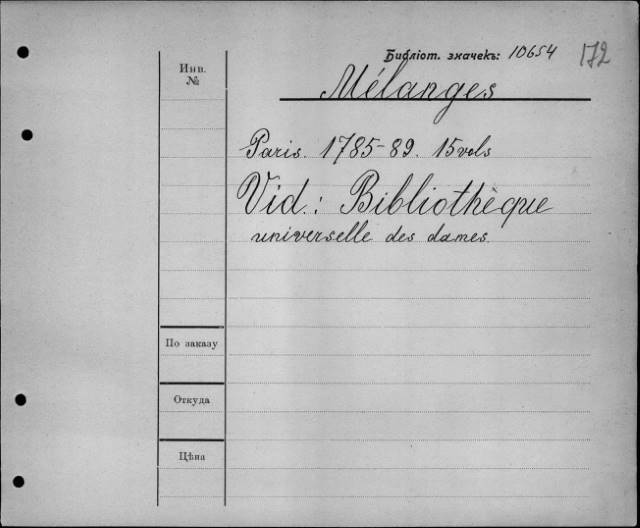 Библіот. значекъ: 10654 172
Инв.
№
Mélanges
Paris. 1785-89. 15 vols
Vid.: Bibliothèque
universelle des dames.
По заказу
Откуда
Цѣна